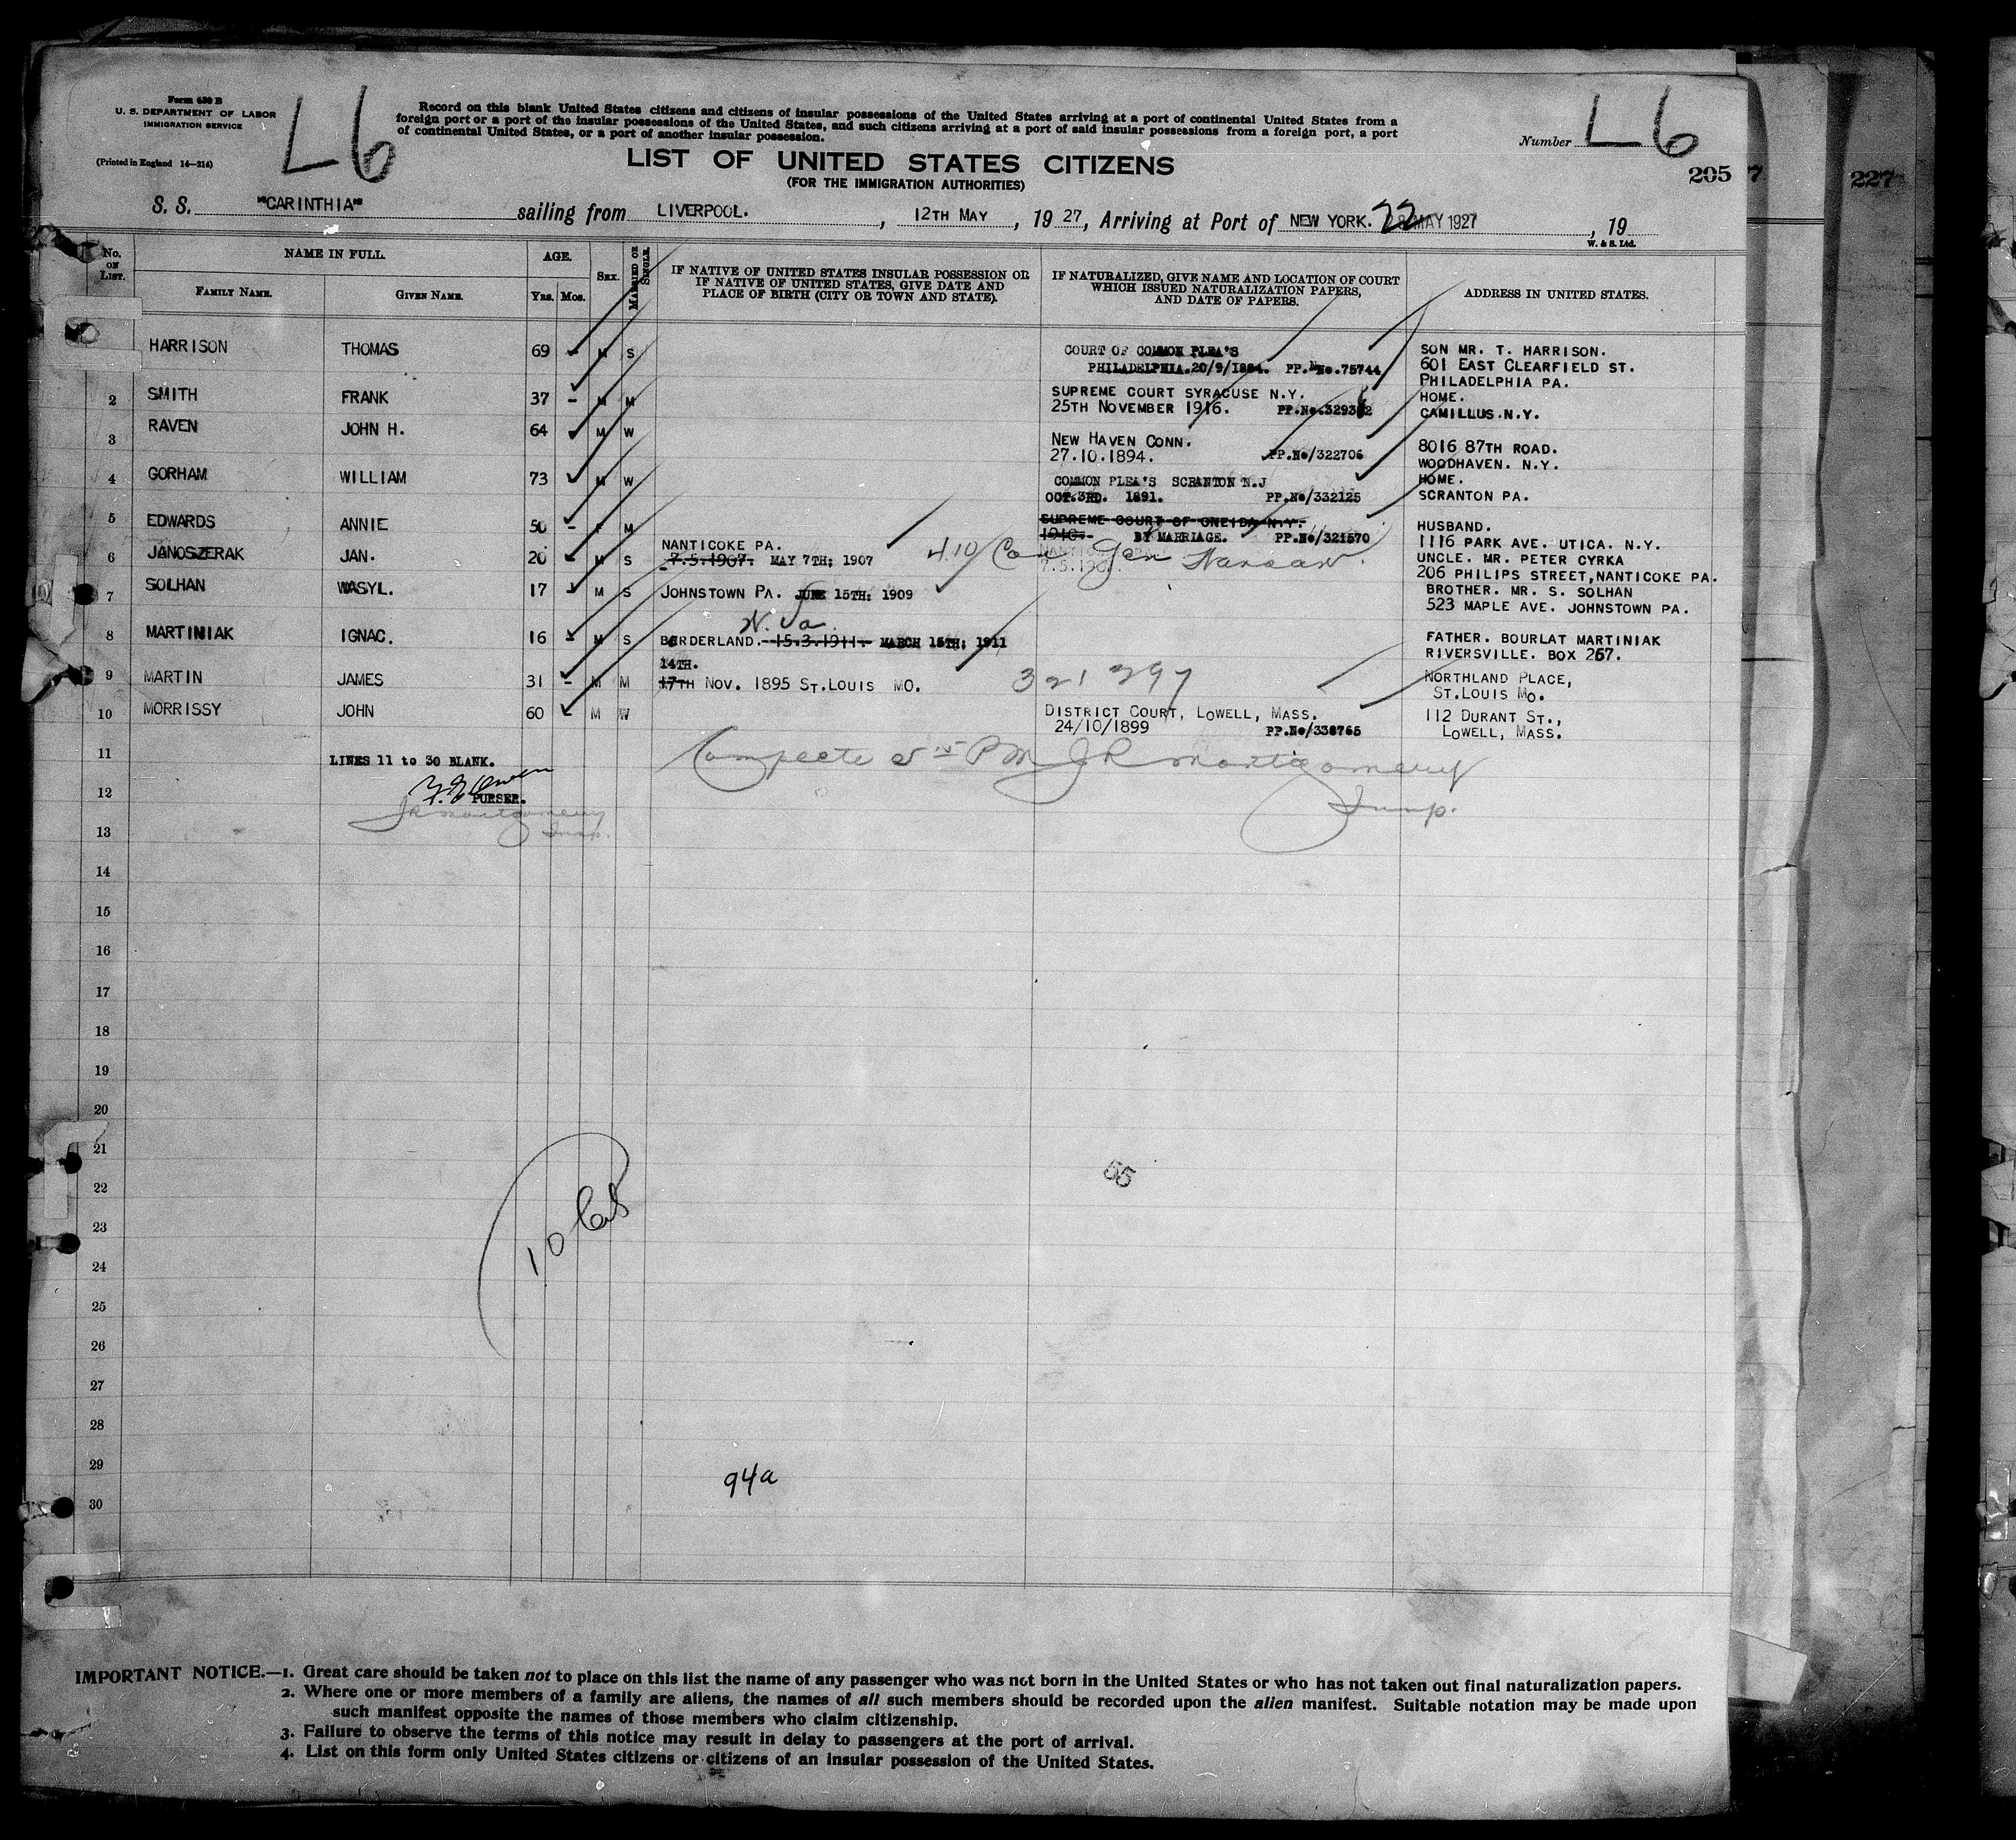 Form 630 B
U. S. DEPARTMENT OF LABOR
IMMIGRATION SERVICE
(Printed in England 14—214)
L6
Record on this blank United States citizens and citizens of insular possessions of the United States arriving at a port of continental United States from a
foreign port or a port of the insular possessions of the United States, and such citizens arriving at a port of said insular possessions from a foreign port, a port
of continental United States, or a port of another insular possession.
Number L6
LIST OF UNITED STATES CITIZENS
(FOR THE IMMIGRATION AUTHORITIES)
205
227
S. S. "CARINTHIA" sailing from LIVERPOOL. , 12TH MAY , 19 27, Arriving at Port of NEW YORK. 22 MAY 1927 , 19
W. & S. Ltd.
No. ON LIST.
NAME IN FULL.
FAMILY NAME. GIVEN NAME.
AGE.
Yrs. Mos.
SEX.
MARRIED OR SINGLE.
IF NATIVE OF UNITED STATES INSULAR POSSESSION OR
IF NATIVE OF UNITED STATES, GIVE DATE AND
PLACE OF BIRTH (CITY OR TOWN AND STATE).
IF NATURALIZED, GIVE NAME AND LOCATION OF COURT
WHICH ISSUED NATURALIZATION PAPERS,
AND DATE OF PAPERS.
ADDRESS IN UNITED STATES.
HARRISON THOMAS 69 - M S COURT OF COMMON PLEA'S SON MR. T. HARRISON.
PHILADELPHIA.20/9/1884. PP.No.75744 601 EAST CLEARFIELD ST.
PHILADELPHIA PA.
2 SMITH FRANK 37 - M M SUPREME COURT SYRACUSE N.Y. HOME.
25TH NOVEMBER 1916. CAMILLUS.N.Y.
3 RAVEN JOHN H. 64 M W NEW HAVEN CONN. 8016 87TH ROAD.
27.10.1894. PP.No/322706 WOODHAVEN. N.Y.
4 GORHAM WILLIAM 73 M W COMMON PLEA'S SCRANTON N.J HOME.
OCT.3RD. 1891. PP.No/332125 SCRANTON PA.
5 EDWARDS ANNIE 50 - F M SUPREME COURT OF ONEIDA N.Y. HUSBAND.
1910. BY MARRIAGE. PP.No/321570 1116 PARK AVE. UTICA. N.Y.
6 JANOSZERAK JAN. 20 M S NANTICOKE PA. UNCLE. MR. PETER CYRKA
7.5.1907. MAY 7TH: 1907 410/Con Gen Warsaw. 206 PHILIPS STREET,NANTICOKE PA.
7 SOLHAN WASYL. 17 M S JOHNSTOWN PA. JUNE 15TH: 1909 BROTHER. MR. S. SOLHAN
523 MAPLE AVE. JOHNSTOWN PA.
W. Va.
8 MARTINIAK IGNAC. 16 - M S BORDERLAND. 15.3.1911. MARCH 15TH: 1911 FATHER. BOURLAT MARTINIAK
RIVERSVILLE. BOX 267.
14TH.
9 MARTIN JAMES 31 - M M 17TH NOV. 1895 ST.LOUIS MO. 321297 NORTHLAND PLACE,
ST.LOUIS MO.
10 MORRISSY JOHN 60 M W DISTRICT COURT, LOWELL, MASS. 112 DURANT ST.,
24/10/1899 PP.No/338765 LOWELL, MASS.
11 LINES 11 to 30 BLANK. JR Montgomery
Insp.
12 PURSER.
JR Montgomery
Insp.
13
14
15
16
17
18
19
20
21
55
22
23
10
24
25
26
27
28
29
94a
30
IMPORTANT NOTICE.—1. Great care should be taken not to place on this list the name of any passenger who was not born in the United States or who has not taken out final naturalization papers.
2. Where one or more members of a family are aliens, the names of all such members should be recorded upon the alien manifest. Suitable notation may be made upon
such manifest opposite the names of those members who claim citizenship.
3. Failure to observe the terms of this notice may result in delay to passengers at the port of arrival.
4. List on this form only United States citizens or citizens of an insular possession of the United States.